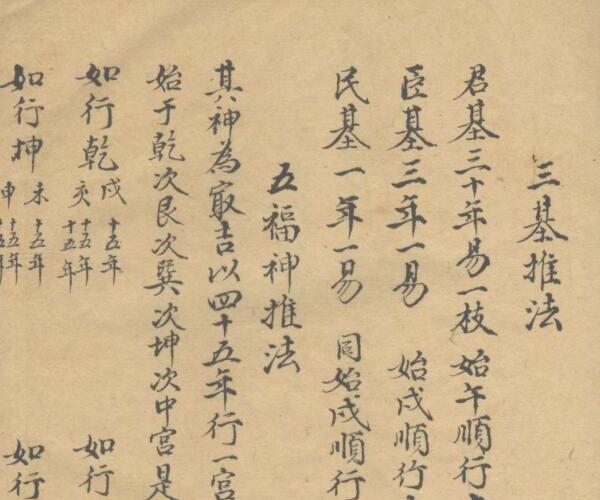 三基推法
君基三十年易一枝 始午順行
臣基三年一易 始戌順行
民基一年一易 同始戌順行
五福神推法
其神為㝡吉以四十五年行一宮
始于乾次艮次巽次坤次中宮是
如行乾 戌十五年 亥十五年 十五年 如行
如行坤 未十五年 申十五年 如行